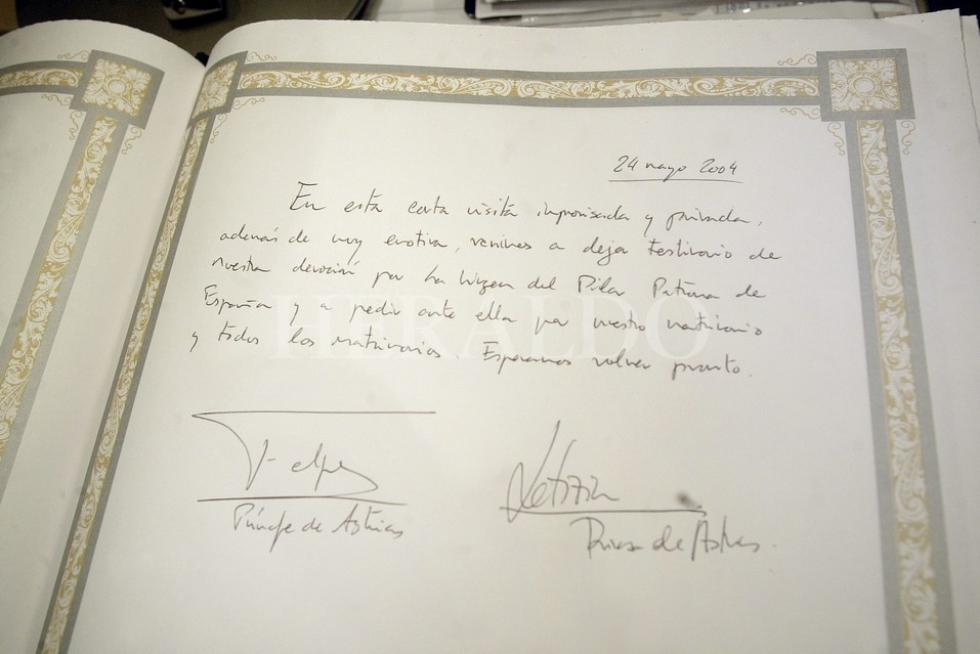 24 mayo 2004
En esta corta visita improvisada y privada,
además de muy emotiva, venimos a dejar testimonio de
nuestra devoción por la Virgen del Pilar Patrona de
España y a pedir ante ella por nuestro matrimonio
y todos los matrimonios. Esperamos volver pronto.
HERALDO
Felipe
Letizia
Príncipe de Asturias
Princesa de Asturias.